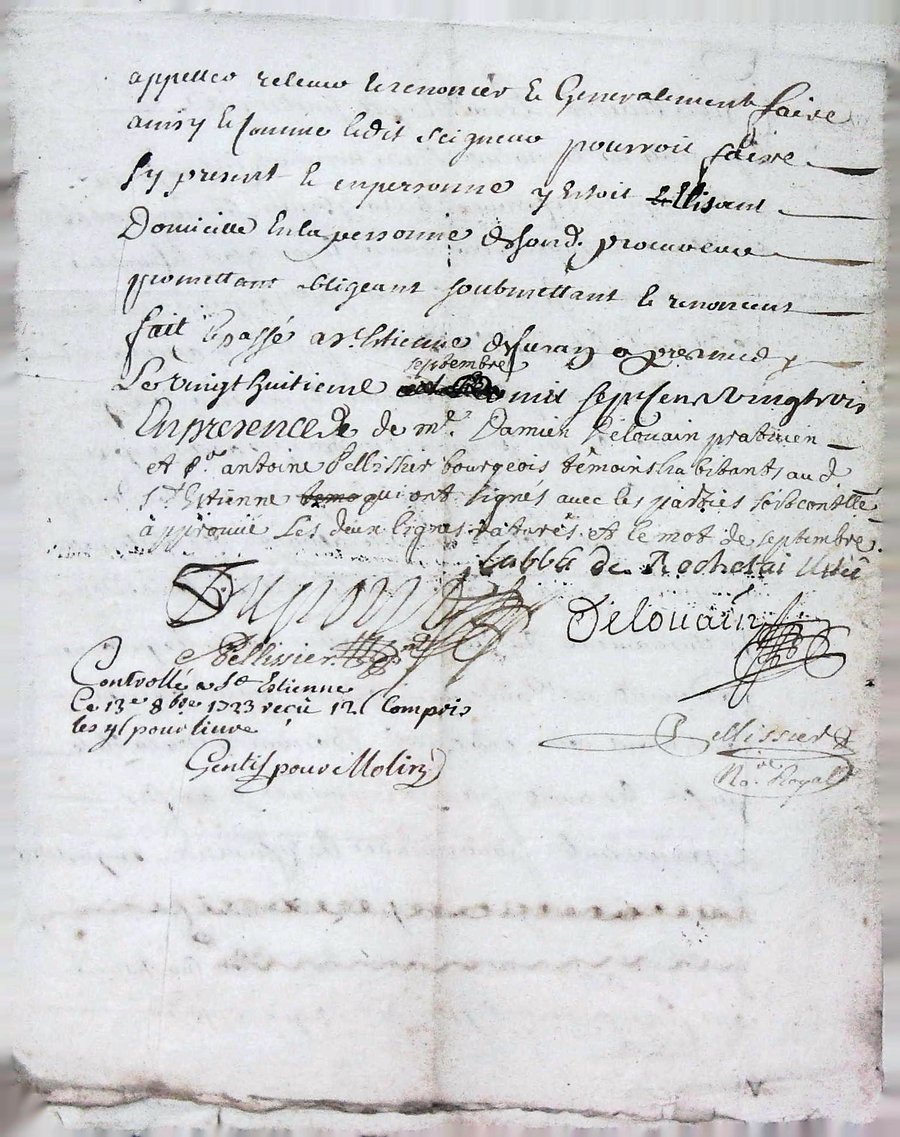 appeller relever et renoncer et Generalement faire
ainsy et comme ledit seigneur pourroit faire
sy present et en personne y estoit Ellisant
Domicille en la personne desond. procureur
promettant obligeant soubmettant et renoncent
fait et passé a st. Etienne defuran apresmidy
septembre
Le vingt huitieme mil sept cens vingt trois
En presence de me. Damien Delouain praticien
et sr. antoine Pellissier bourgeois têmoins habitants aud.
St. Etienne qui ont signés avec les parties
approuvé Les deux lignes raturés et le mot de septembre.
Labbé de Rochetai
Dupouy
Delouain
Pellissier
Controllé a St Etienne
Ce 13e 8bre 1723 recu 12 Compris
les 4 s pour livre
Pellissier
No.re Royal
Gentis pour Molin